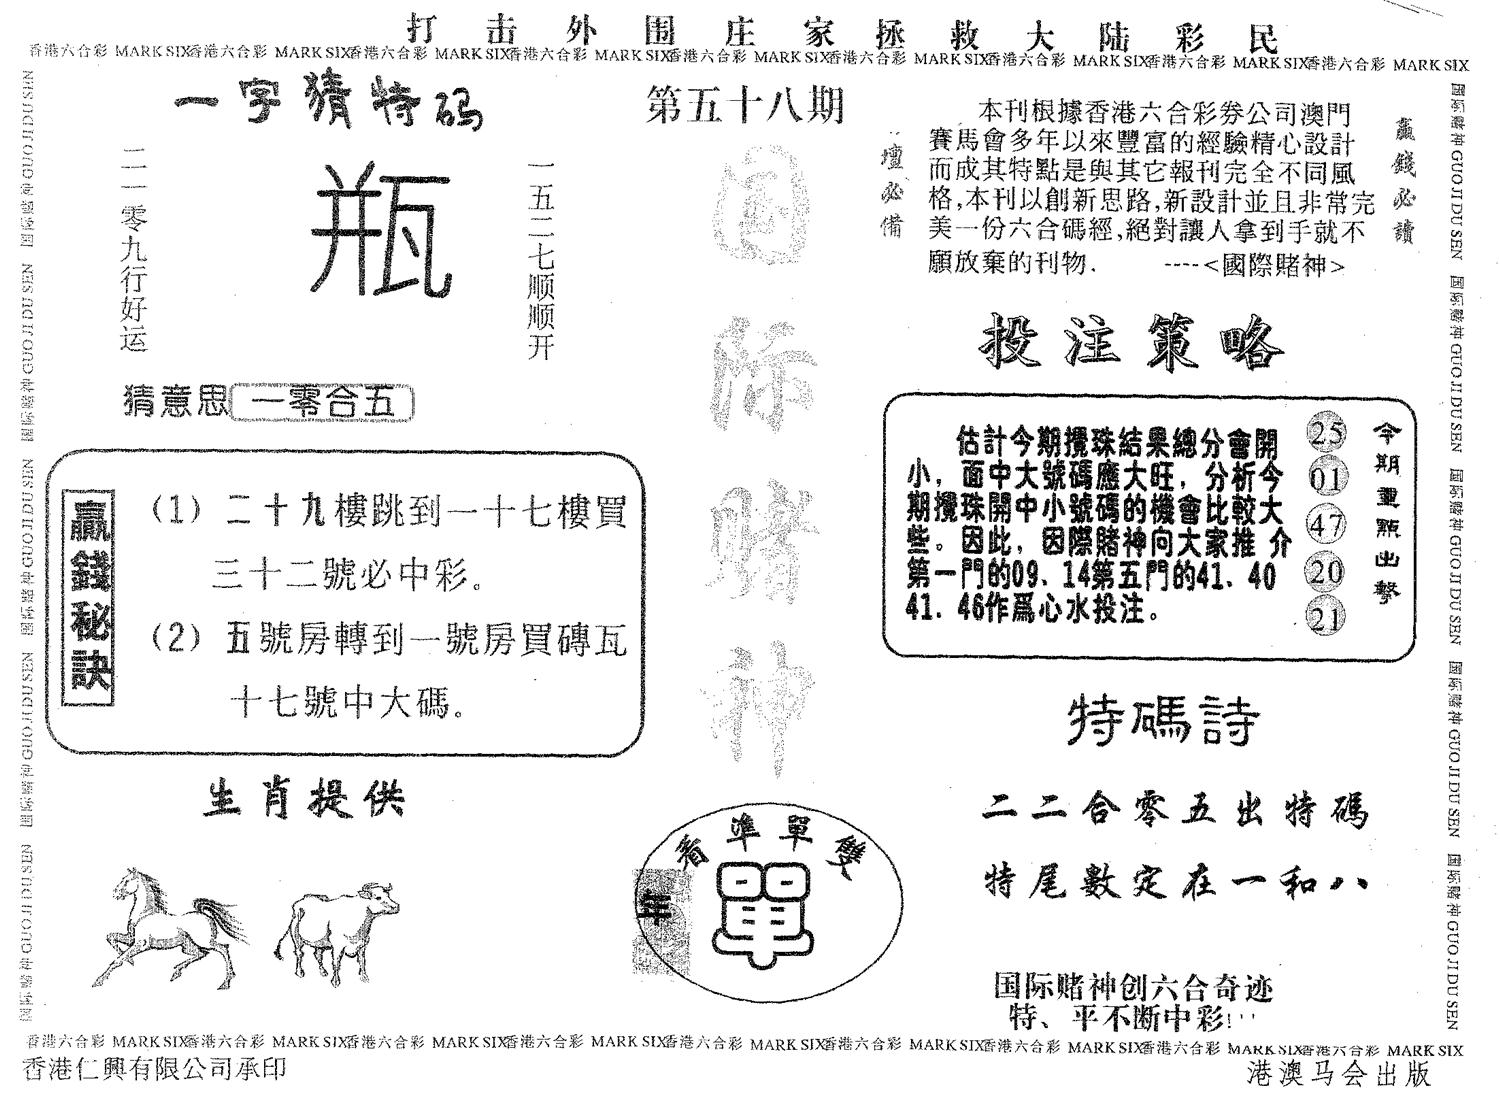 打击外围庄家拯救大陆彩民
香港六合彩 MARK SIX香港六合彩 MARK SIX香港六合彩 MARK SIX香港六合彩 MARK SIX香港六合彩 MARK SIX香港六合彩 MARK SIX香港六合彩 MARK SIX香港六合彩 MARK SIX香港六合彩 MARK SIX
一字猜特码
二一零九行好运
瓶
一五二七顺顺开
猜意思 一零合五
贏錢秘訣
（1）二十九樓跳到一十七樓買
三十二號必中彩。
（2）五號房轉到一號房買磚瓦
十七號中大碼。
生肖提供
第五十八期
国际赌神
看準單雙
年
單
壇必備
本刊根據香港六合彩券公司澳門
賽馬會多年以來豐富的經驗精心設計
而成其特點是與其它報刊完全不同風
格,本刊以創新思路,新設計並且非常完
美一份六合碼經,絕對讓人拿到手就不
願放棄的刊物. ----<國際賭神>
贏錢必讀
投注策略
估計今期攪珠結果總分會開
小，面中大號碼應大旺，分析今
期攪珠開中小號碼的機會比較大
些。因此，因際賭神向大家推 介
第一門的09、14第五門的41、40
41、46作爲心水投注。
25
01
47
20
21
今期重點出擊
特碼詩
二二合零五出特碼
特尾數定在一和八
国际赌神创六合奇迹
特、平不断中彩!
国际赌神 GUO JI DU SEN 国际赌神 GUO JI DU SEN 国际赌神 GUO JI DU SEN 国际赌神 GUO JI DU SEN 国际赌神 GUO JI DU SEN
国际赌神 GUO JI DU SEN 国际赌神 GUO JI DU SEN 国际赌神 GUO JI DU SEN 国际赌神 GUO JI DU SEN 国际赌神 GUO JI DU SEN
香港六合彩 MARK SIX香港六合彩 MARK SIX香港六合彩 MARK SIX香港六合彩 MARK SIX香港六合彩 MARK SIX香港六合彩 MARK SIX香港六合彩 MARK SIX香港六合彩 MARK SIX香港六合彩 MARK SIX
香港仁興有限公司承印
港澳马会出版